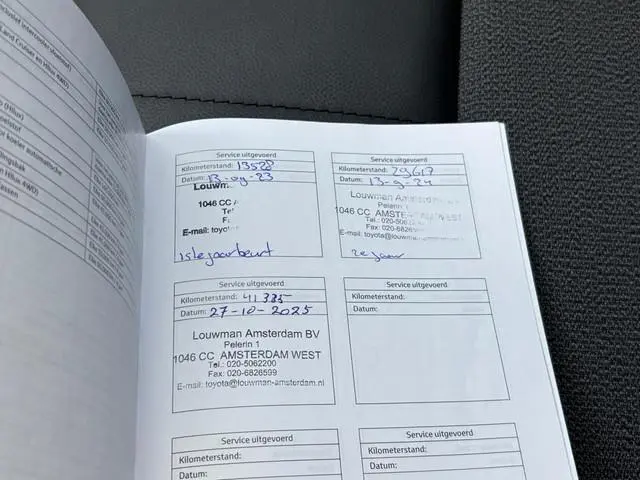 Land Cruiser en Hilux 4WD)
(Hilux)
Service uitgevoerd
Kilometerstand: 13528
Datum: 13-09-23
Louwm
1046 CC
E-mail: toyot
1ste jaarbeurt
Service uitgevoerd
Kilometerstand: 29617
Datum: 13-9-24
Louwman Amsterdam
Pelerin 1
1046 CC AMSTERDAM WEST
Tel.: 020-506
Fax: 020-6826
E-mail: toyota@louwman
2e jaar
Service uitgevoerd
Kilometerstand: 41335
Datum: 27-10-2025
Louwman Amsterdam BV
Pelerin 1
1046 CC AMSTERDAM WEST
Tel.: 020-5062200
Fax: 020-6826599
E-mail: toyota@louwman-amsterdam.nl
Service uitgevoerd
Kilometerstand:
Datum:
Service uitgevoerd
Kilometerstand:
Datum:
Service uitgevoerd
Kilometerstand:
Datum: